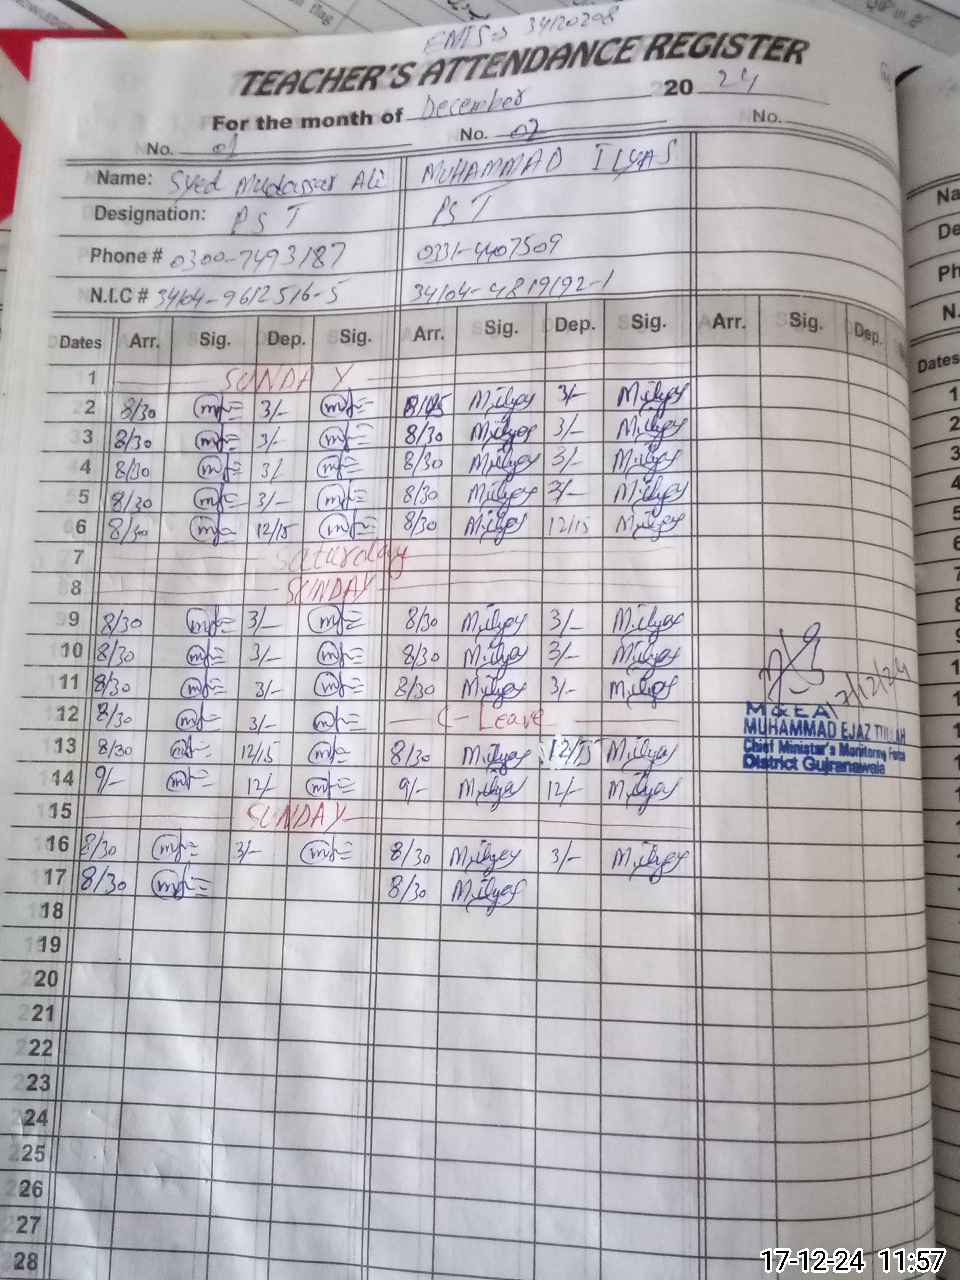 EMIS→ 34120208
TEACHER'S ATTENDANCE REGISTER
For the month of December 20 24
No. 01 No. 02 No.
Name: Syed Mudassar Ali MUHAMMAD ILYAS
Designation: PST PST
Phone # 0300-7493187 0331-4407509
N.I.C # 34104-9612516-5 34104-4819192-1
Dates Arr. Sig. Dep. Sig. Arr. Sig. Dep. Sig. Arr. Sig. Dep.
1 SUNDAY
2 8/30 3/- M.ilyas 3/- M.ilyas
3 8/30 3/- 8/30 M.ilyas 3/- M.ilyas
4 8/30 3/- 8/30 M.ilyas 3/- M.ilyas
5 8/30 3/- 8/30 M.ilyas 3/- M.ilyas
6 8/30 12/15 8/30 M.ilyas 12/15 M.ilyas
7 Saturday
8 SUNDAY
9 8/30 3/- 8/30 M.ilyas 3/- M.ilyas
10 8/30 3/- 8/30 M.ilyas 3/- M.ilyas
11 8/30 3/- 8/30 M.ilyas 3/- M.ilyas
12 8/30 3/- C-Leave
13 8/30 12/15 8/30 M.ilyas 12/15 M.ilyas
14 9/- 12/- 9/- M.ilyas 12/- M.ilyas
15 SUNDAY
16 8/30 3/- 8/30 M.ilyas 3/- M.ilyas
17 8/30 8/30 M.ilyas
18
19
20
21
22
23
24
25
26
27
28
17/12/24
M&EA
MUHAMMAD EJAZ
Chief Minister's Monitoring Force
District Gujranwala
Na
De
Ph
N.
Dates
17-12-24 11:57